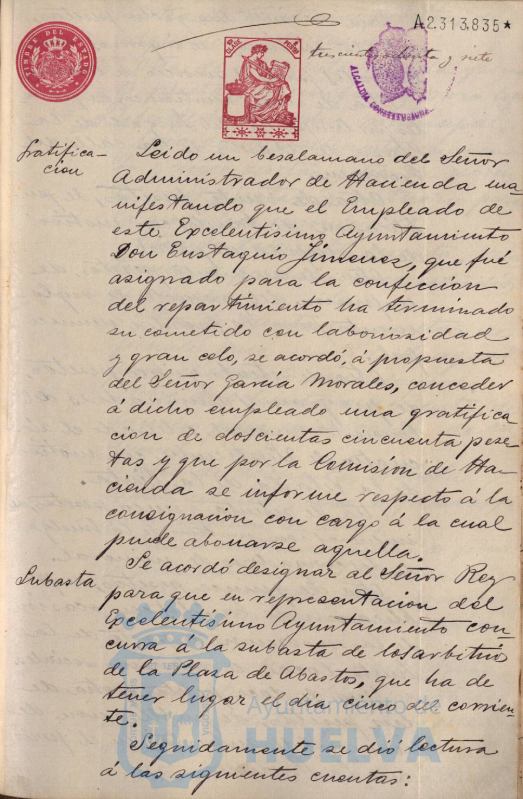 A2.313.835*
TIMBRE DEL ESTADO
trescientos ochenta y siete
ALCALDIA CONSTITUCIONAL
Gratifica-
cion
Leido un besalamano del Señor
Administrador de Hacienda ma-
nifestando que el Empleado de
este Excelentisimo Ayuntamiento
Don Eustaquio Jimenez, que fué
asignado para la confeccion
del repartimiento ha terminado
su cometido con laboriosidad
y gran celo, se acordó, á propuesta
del Señor Garcia Morales, conceder
á dicho empleado una gratifica
cion de doscientas cincuenta pese-
tas y que por la Comisión de Ha-
cienda se informe respecto á la
consignacion con cargo á la cual
puede abonarse aquella.
Subasta
Se acordó designar al Señor Rey
para que en representacion del
Excelentisimo Ayuntamiento con-
curra á la subasta de los arbitrios
de la Plaza de Abastos, que ha de
tener lugar el dia cinco del corrien-
te.
Ayuntamiento de
HUELVA
Seguidamente se dió lectura
á las siguientes cuentas: